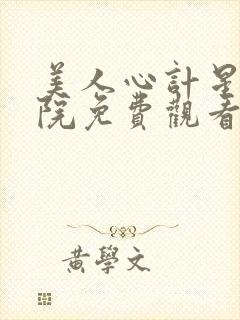 美人心計星
院免費觀看
黃學文